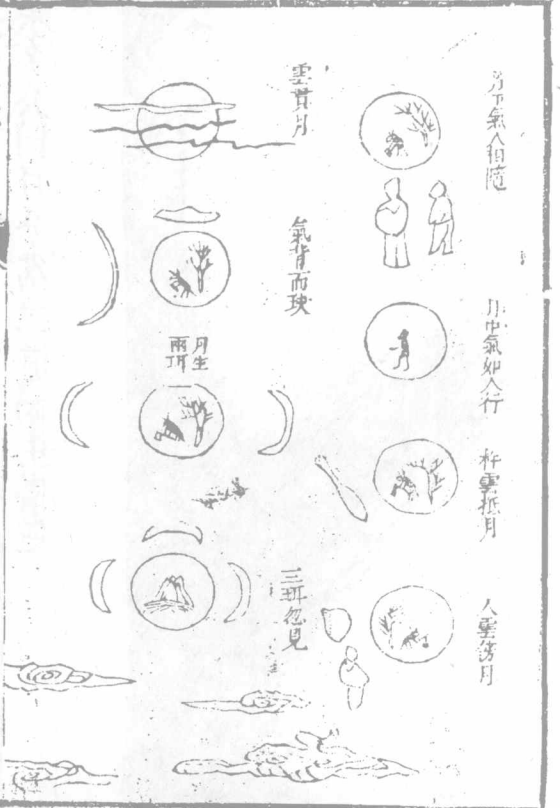 月下氣人相隨
月中氣如人行
杵雲抵月
人雲傍月
雲貫月
氣背而玦
月生
兩珥
三珥忽見